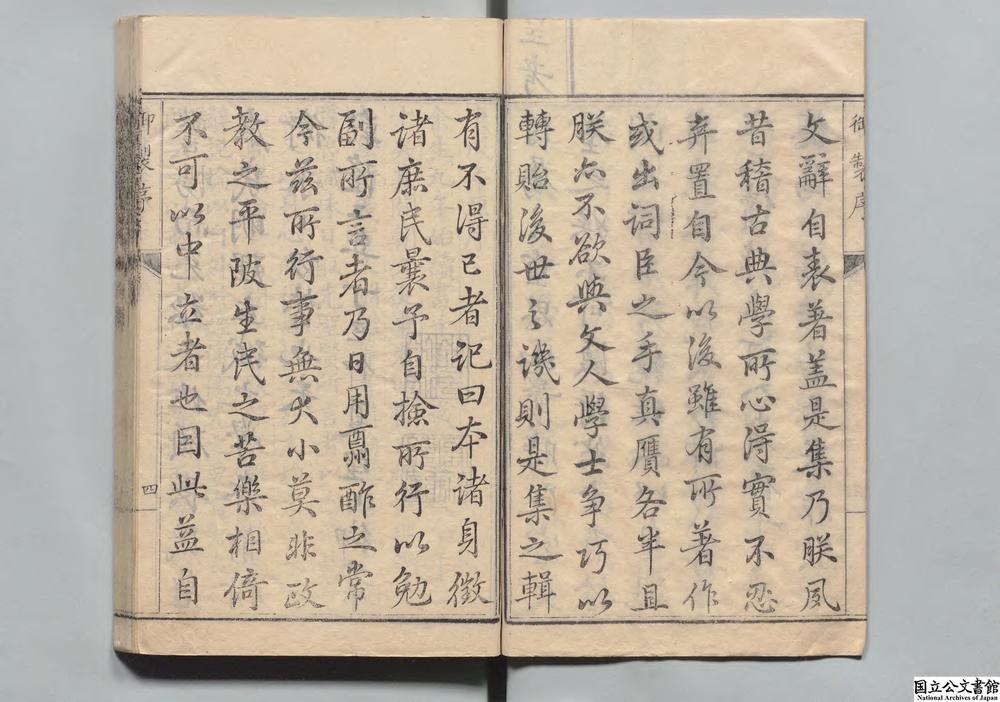 御製序
文辭自表著蓋是集乃朕夙
昔稽古典學所心得實不忍
弃置自今以後雖有所著作
或出詞臣之手真贋各半且
朕亦不欲與文人學士爭巧以
轉貽後世之譏則是集之輯
有不得已者記曰本諸身徵
諸庶民曩予自撿所行以勉
副所言者乃日用羣酢之常
今茲所行事無大小莫非政
教之平陂生民之苦樂相倚
不可以中立者也因此益自
御製序
四
国立公文書館
National Archives of Japan